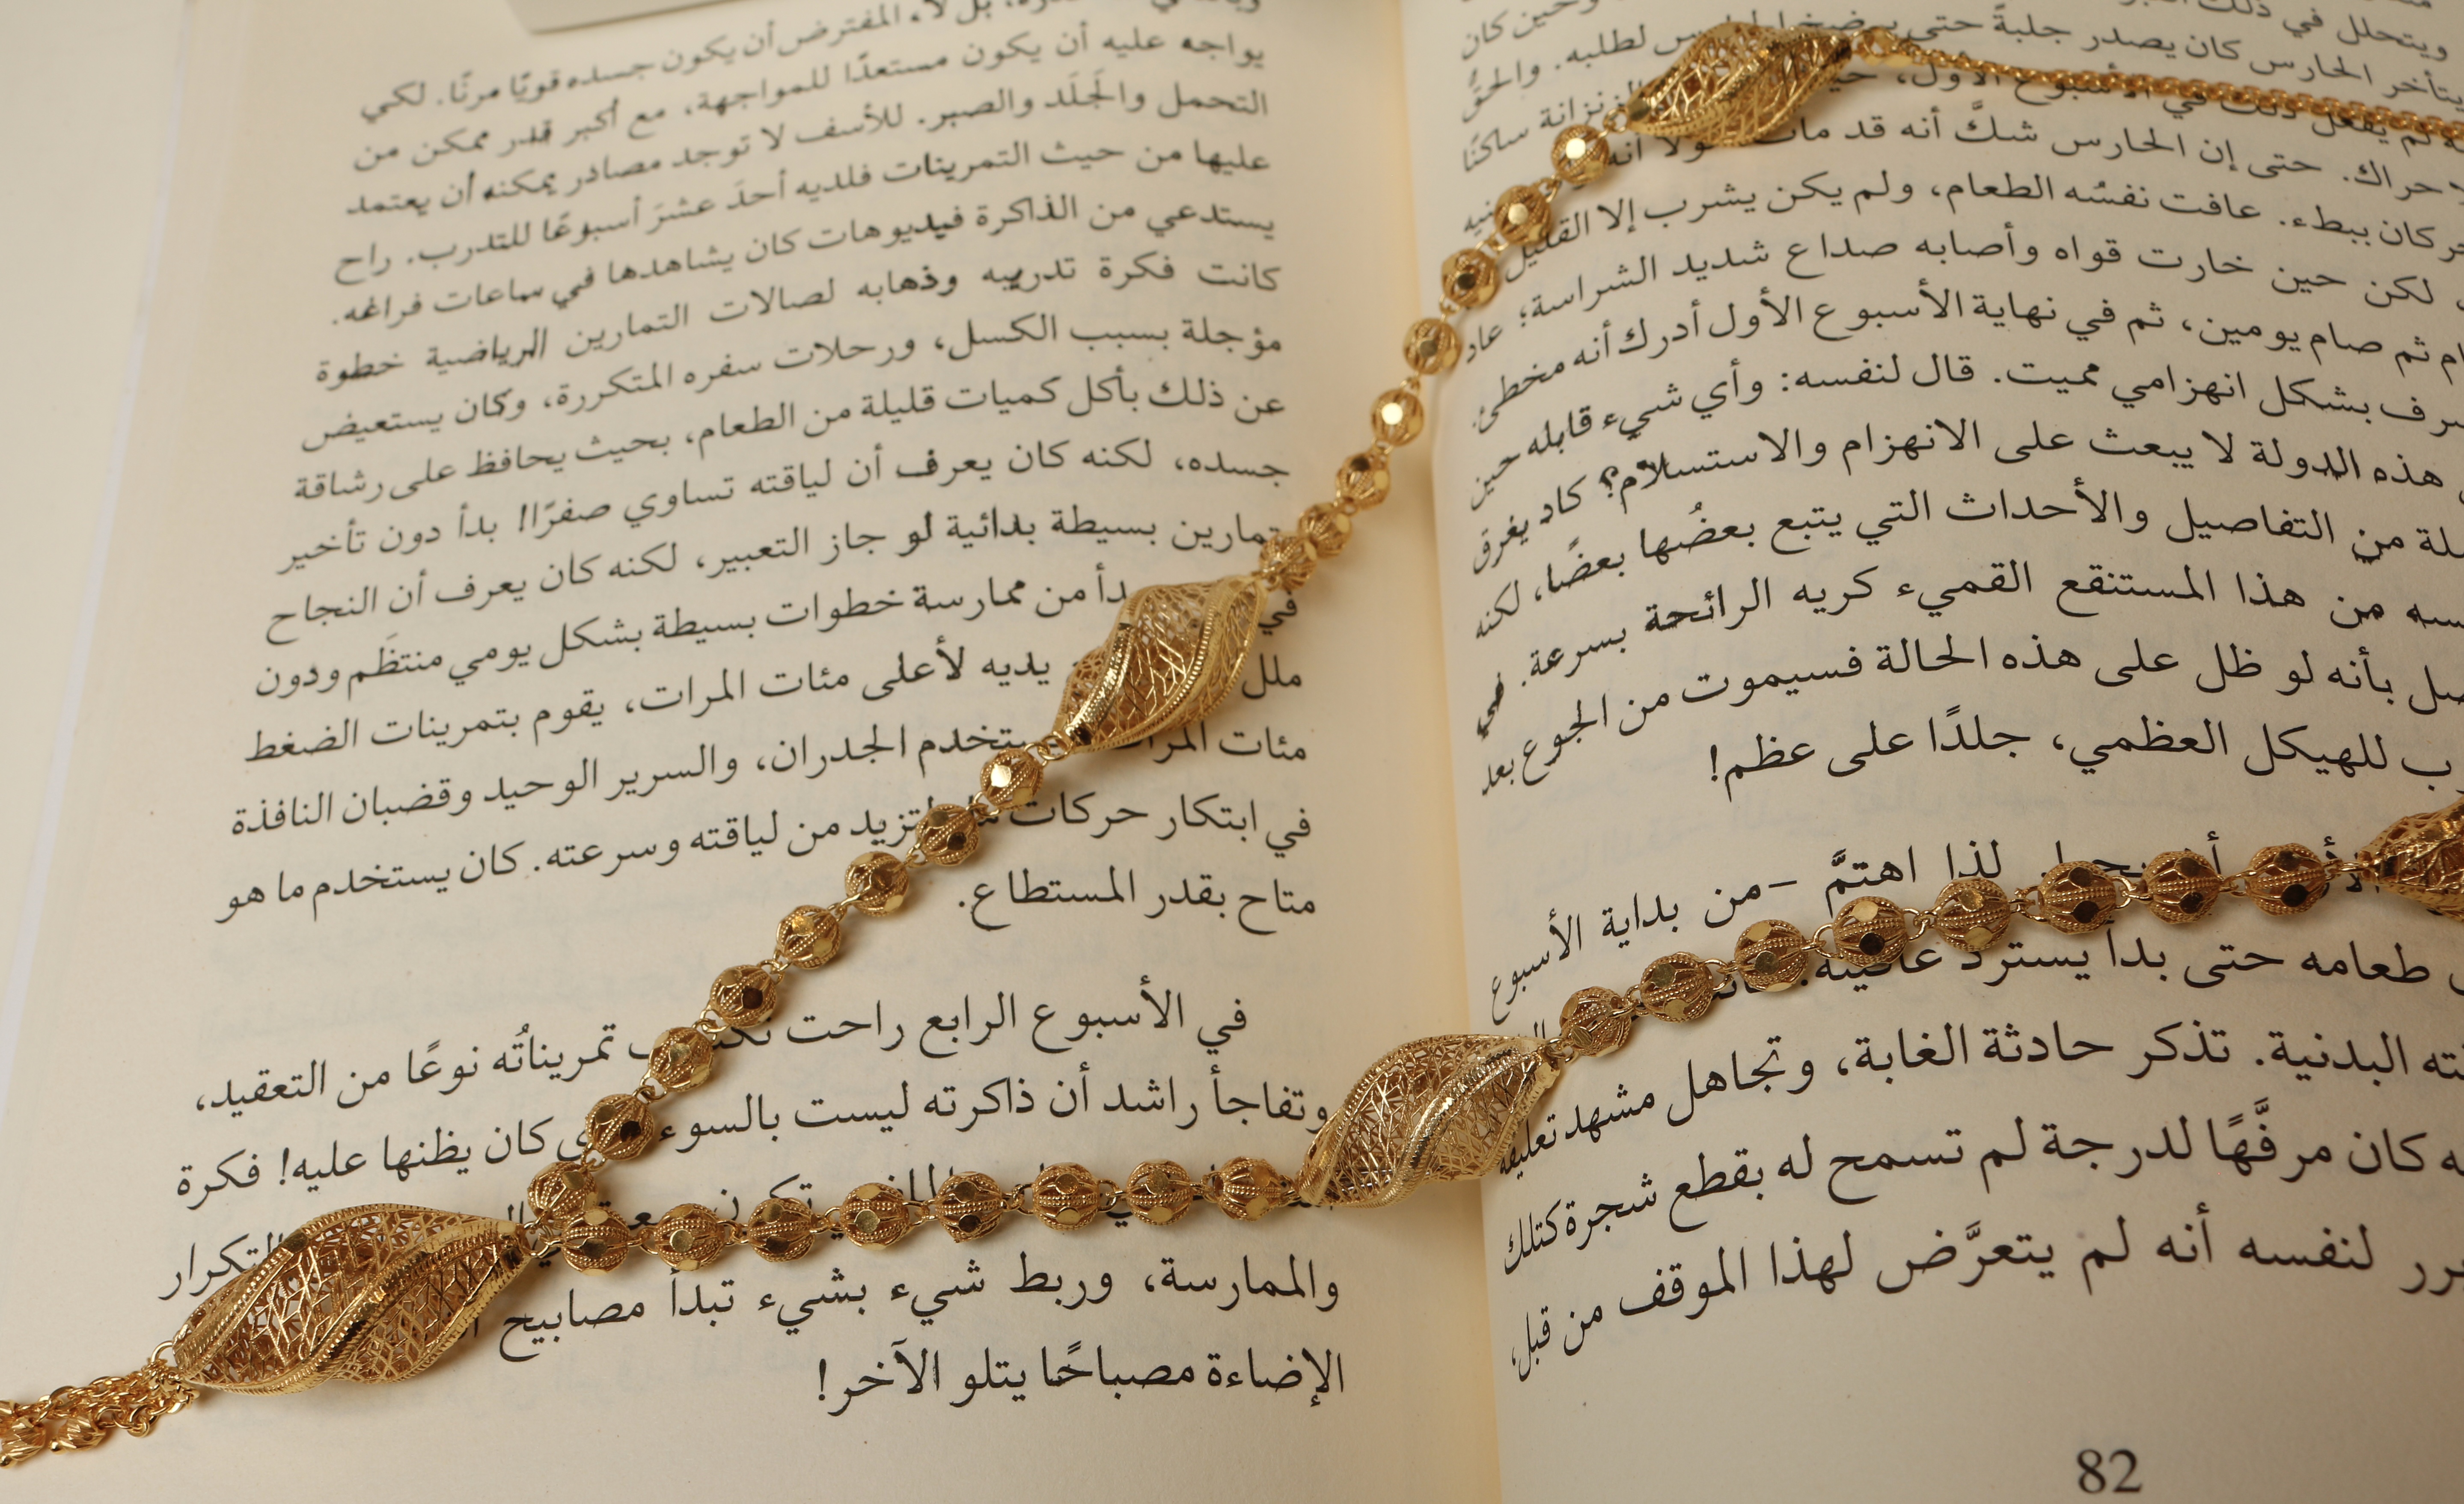 ويتحلل في ذلك
يتأخر الحارس كان يصدر جلبةً حتى لطلبه. والحقُّ
لم يفعل ذلك في الأسبوع الأول، الزنزانة ساكنًا
حراك. حتى إن الحارس شكَّ أنه قد مات لولا أنه
ببطء. عافت نفسُه الطعام، ولم يكن يشرب إلا القليل
لكن حين خارت قواه وأصابه صداع شديد الشراسة؛ عاد
ثم صام يومين، ثم في نهاية الأسبوع الأول أدرك أنه مخطئ.
بشكل انهزامي مميت. قال لنفسه: وأي شيء قابله حين
هذه الدولة لا يبعث على الانهزام والاستسلام؟ كاد يغرق
من التفاصيل والأحداث التي يتبع بعضُها بعضًا، لكنه
من هذا المستنقع القميء كريه الرائحة بسرعة. في
بأنه لو ظل على هذه الحالة فسيموت من الجوع بعد
للهيكل العظمي، جلدًا على عظم!
لذا اهتمَّ –من بداية الأسبوع
طعامه حتى بدأ يستردّ عافيته.
البدنية. تذكر حادثة الغابة، وتجاهل مشهد تعليقه
كان مرفَّهًا لدرجة لم تسمح له بقطع شجرة كتلك
لنفسه أنه لم يتعرَّض لهذا الموقف من قبل،
82
بل لاء المفترض أن يكون جسده قويًا مرنًا. لكي
يواجه عليه أن يكون مستعدًا للمواجهة، مع أكبر قدر ممكن من
التحمل والجَلَد والصبر. للأسف لا توجد مصادر يمكنه أن يعتمد
عليها من حيث التمرينات فلديه أحدَ عشرَ أسبوعًا للتدرب. راح
يستدعي من الذاكرة فيديوهات كان يشاهدها في ساعات فراغه.
كانت فكرة تدريبه وذهابه لصالات التمارين الرياضية خطوة
مؤجلة بسبب الكسل، ورحلات سفره المتكررة، وكان يستعيض
عن ذلك بأكل كميات قليلة من الطعام، بحيث يحافظ على رشاقة
جسده، لكنه كان يعرف أن لياقته تساوي صفرًا! بدأ دون تأخير
تمارين بسيطة بدائية لو جاز التعبير، لكنه كان يعرف أن النجاح
في من ممارسة خطوات بسيطة بشكل يومي منتظَم ودون
ملل يديه لأعلى مئات المرات، يقوم بتمرينات الضغط
مئات المرات يستخدم الجدران، والسرير الوحيد وقضبان النافذة
في ابتكار حركات لتزيد من لياقته وسرعته. كان يستخدم ما هو
متاح بقدر المستطاع.
في الأسبوع الرابع راحت تمريناتُه نوعًا من التعقيد،
وتفاجأ راشد أن ذاكرته ليست بالسوء كان يظنها عليه! فكرة
التكرار
والممارسة، وربط شيء بشيء تبدأ مصابيح
الإضاءة مصباحًا يتلو الآخر!